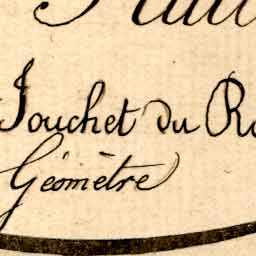 Jouchet du
Géomètre